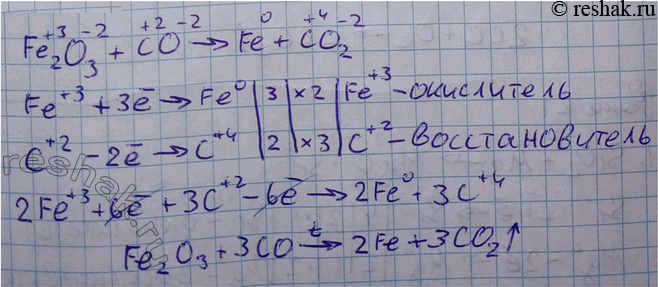 © reshak.ru
+3 -2 +2 -2 0 +4 -2
Fe₂O₃ + CO → Fe + CO₂
Fe⁺³ + 3e̅ → Fe⁰ | 3 | ×2 | Fe⁺³ - окислитель
C⁺² - 2e̅ → C⁺⁴ | 2 | ×3 | C⁺² - Восстановитель
2Fe⁺³ + 6e̅ + 3C⁺² - 6e̅ → 2Fe⁰ + 3C⁺⁴
t
Fe₂O₃ + 3CO → 2Fe + 3CO₂↑
reshak.ru